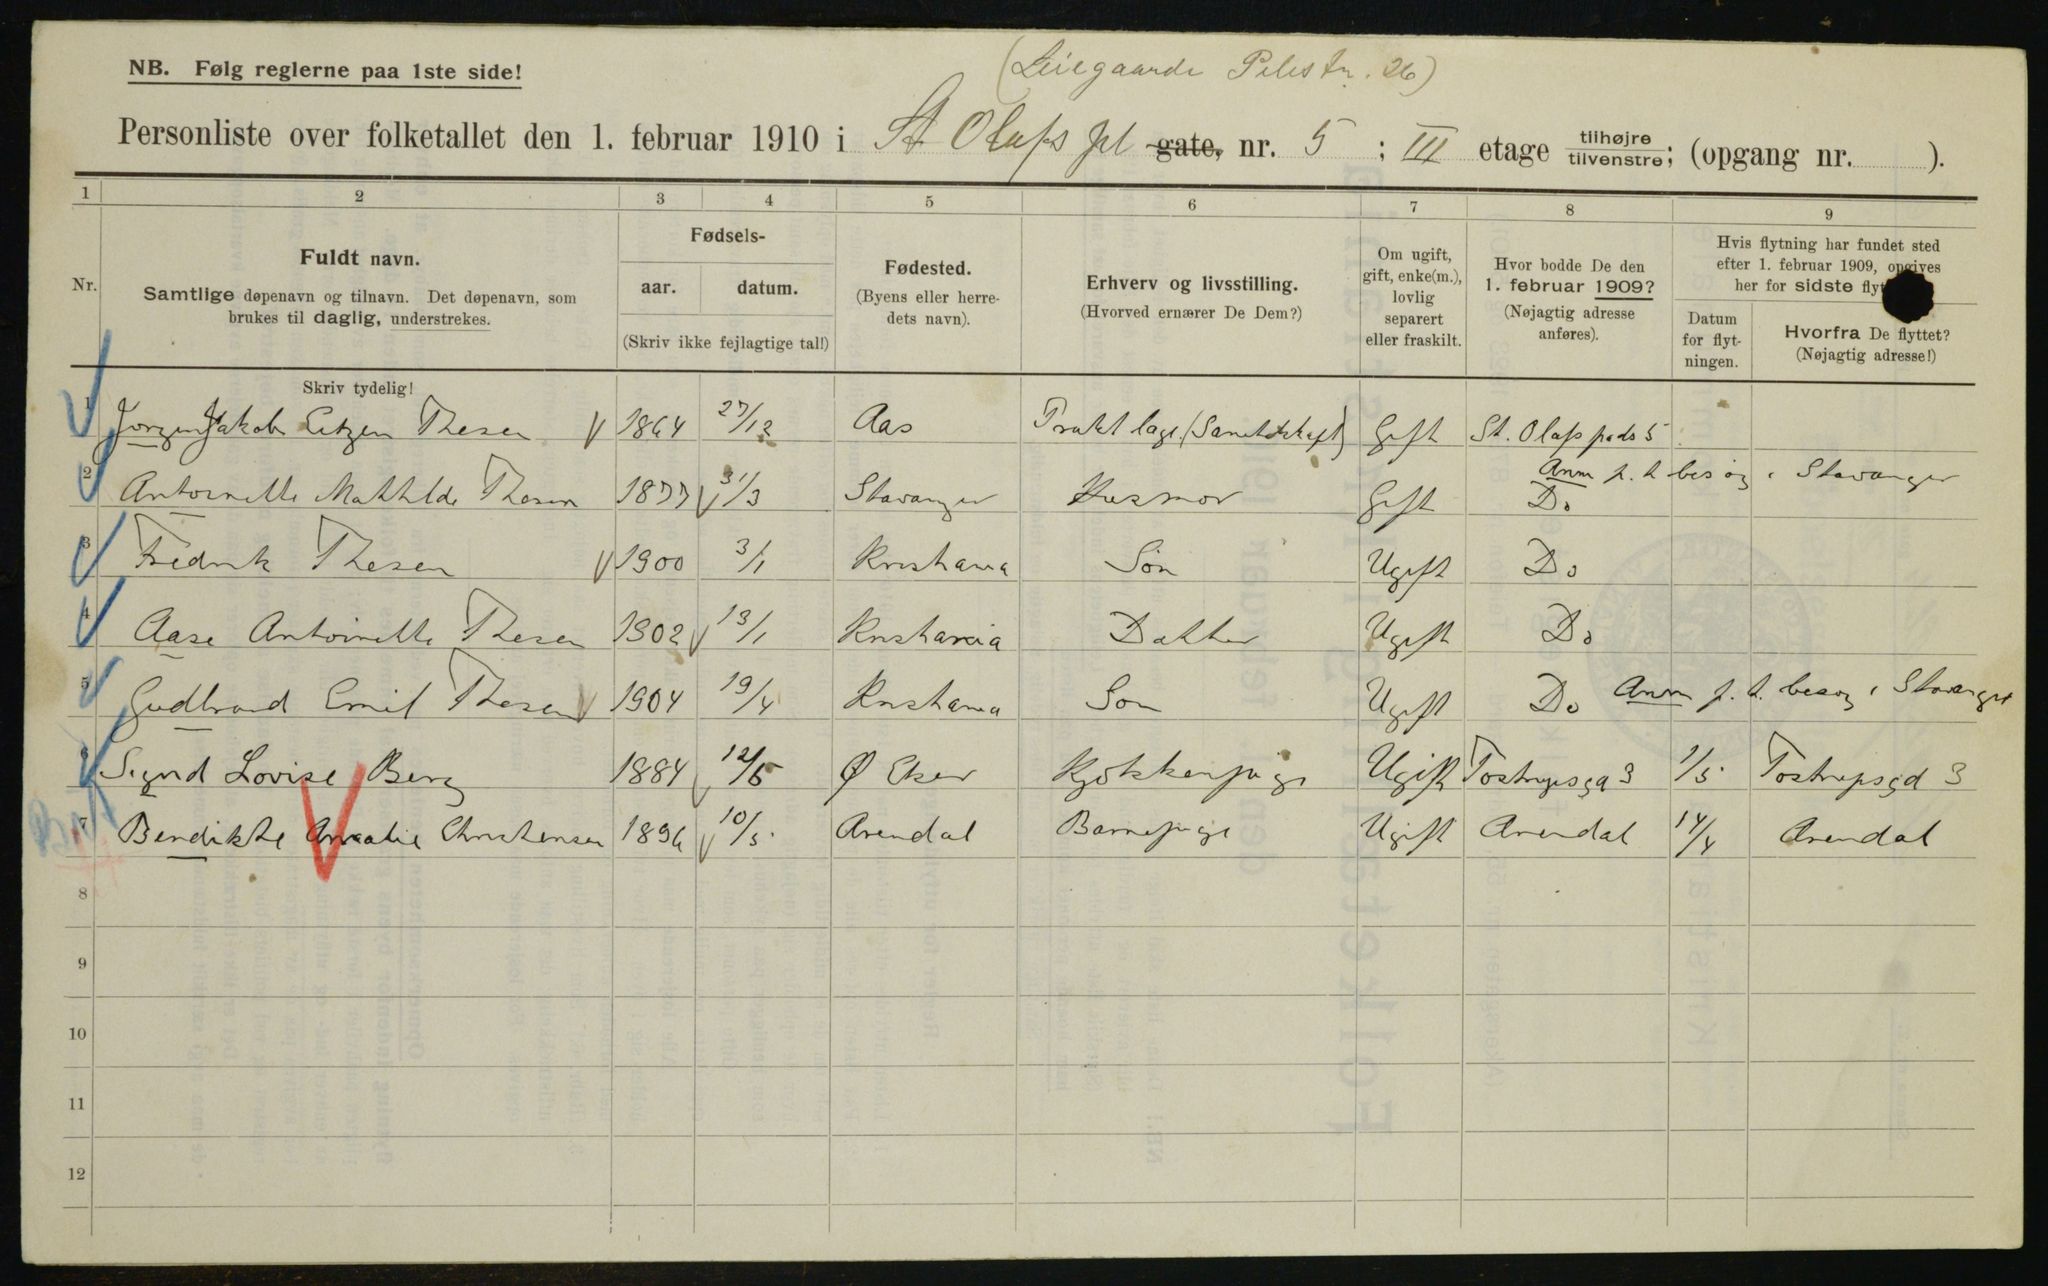 (Leiegaarde Pilestr. 26)
NB. Følg reglerne paa 1ste side!
Personliste over folketallet den 1. februar 1910 i St Olafs pl gate, nr. 5 ; III etage tilhøjre tilvenstre; (opgang nr. ).
1 2 3 4 5 6 7 8 9
Nr.
Fuldt navn.
Samtlige døpenavn og tilnavn. Det døpenavn, som
brukes til daglig, understrekes.
Skriv tydelig!
Fødsels-
aar. datum.
(Skriv ikke fejlagtige tal!)
Fødested.
(Byens eller herre-
dets navn).
Erhverv og livsstilling.
(Hvorved ernærer De Dem?)
Om ugift,
gift, enke(m.),
lovlig
separert
eller fraskilt.
Hvor bodde De den
1. februar 1909?
(Nøjagtig adresse
anføres).
Hvis flytning har fundet sted
efter 1. februar 1909, opgives
her for sidste
Datum
for flyt-
ningen.
Hvorfra De flyttet?
(Nøjagtig adresse!)
1 Jørgen Jakob Eitzen Thesen 1864 27/12 Aas Prakt læge Gift St. Olafs plads 5
2 Antoinette Mathilde Thesen 1877 31/3 Stavanger Husmor Gift Do Anm p. t. besøg i Stavanger
3 Fredrik Thesen 1900 3/1 Kristiania Søn Ugift Do
4 Aase Antoinette Thesen 1902 13/1 Kristiania Datter Ugift Do
5 Gudbrand Emil Thesen 1904 19/4 Kristiania Søn Ugift Do Anm p. t. besøg i Stavanger
6 Sigrid Lovise Berg 1884 12/5 Ø Eker Kjøkkenpige Ugift Tostrupsgd 3 1/5 Tostrupsgd 3
7 Bendikte Amalie Christensen 1896 10/5 Arendal Barnepige Ugift Arendal 14/4 Arendal
8
9
10
11
12